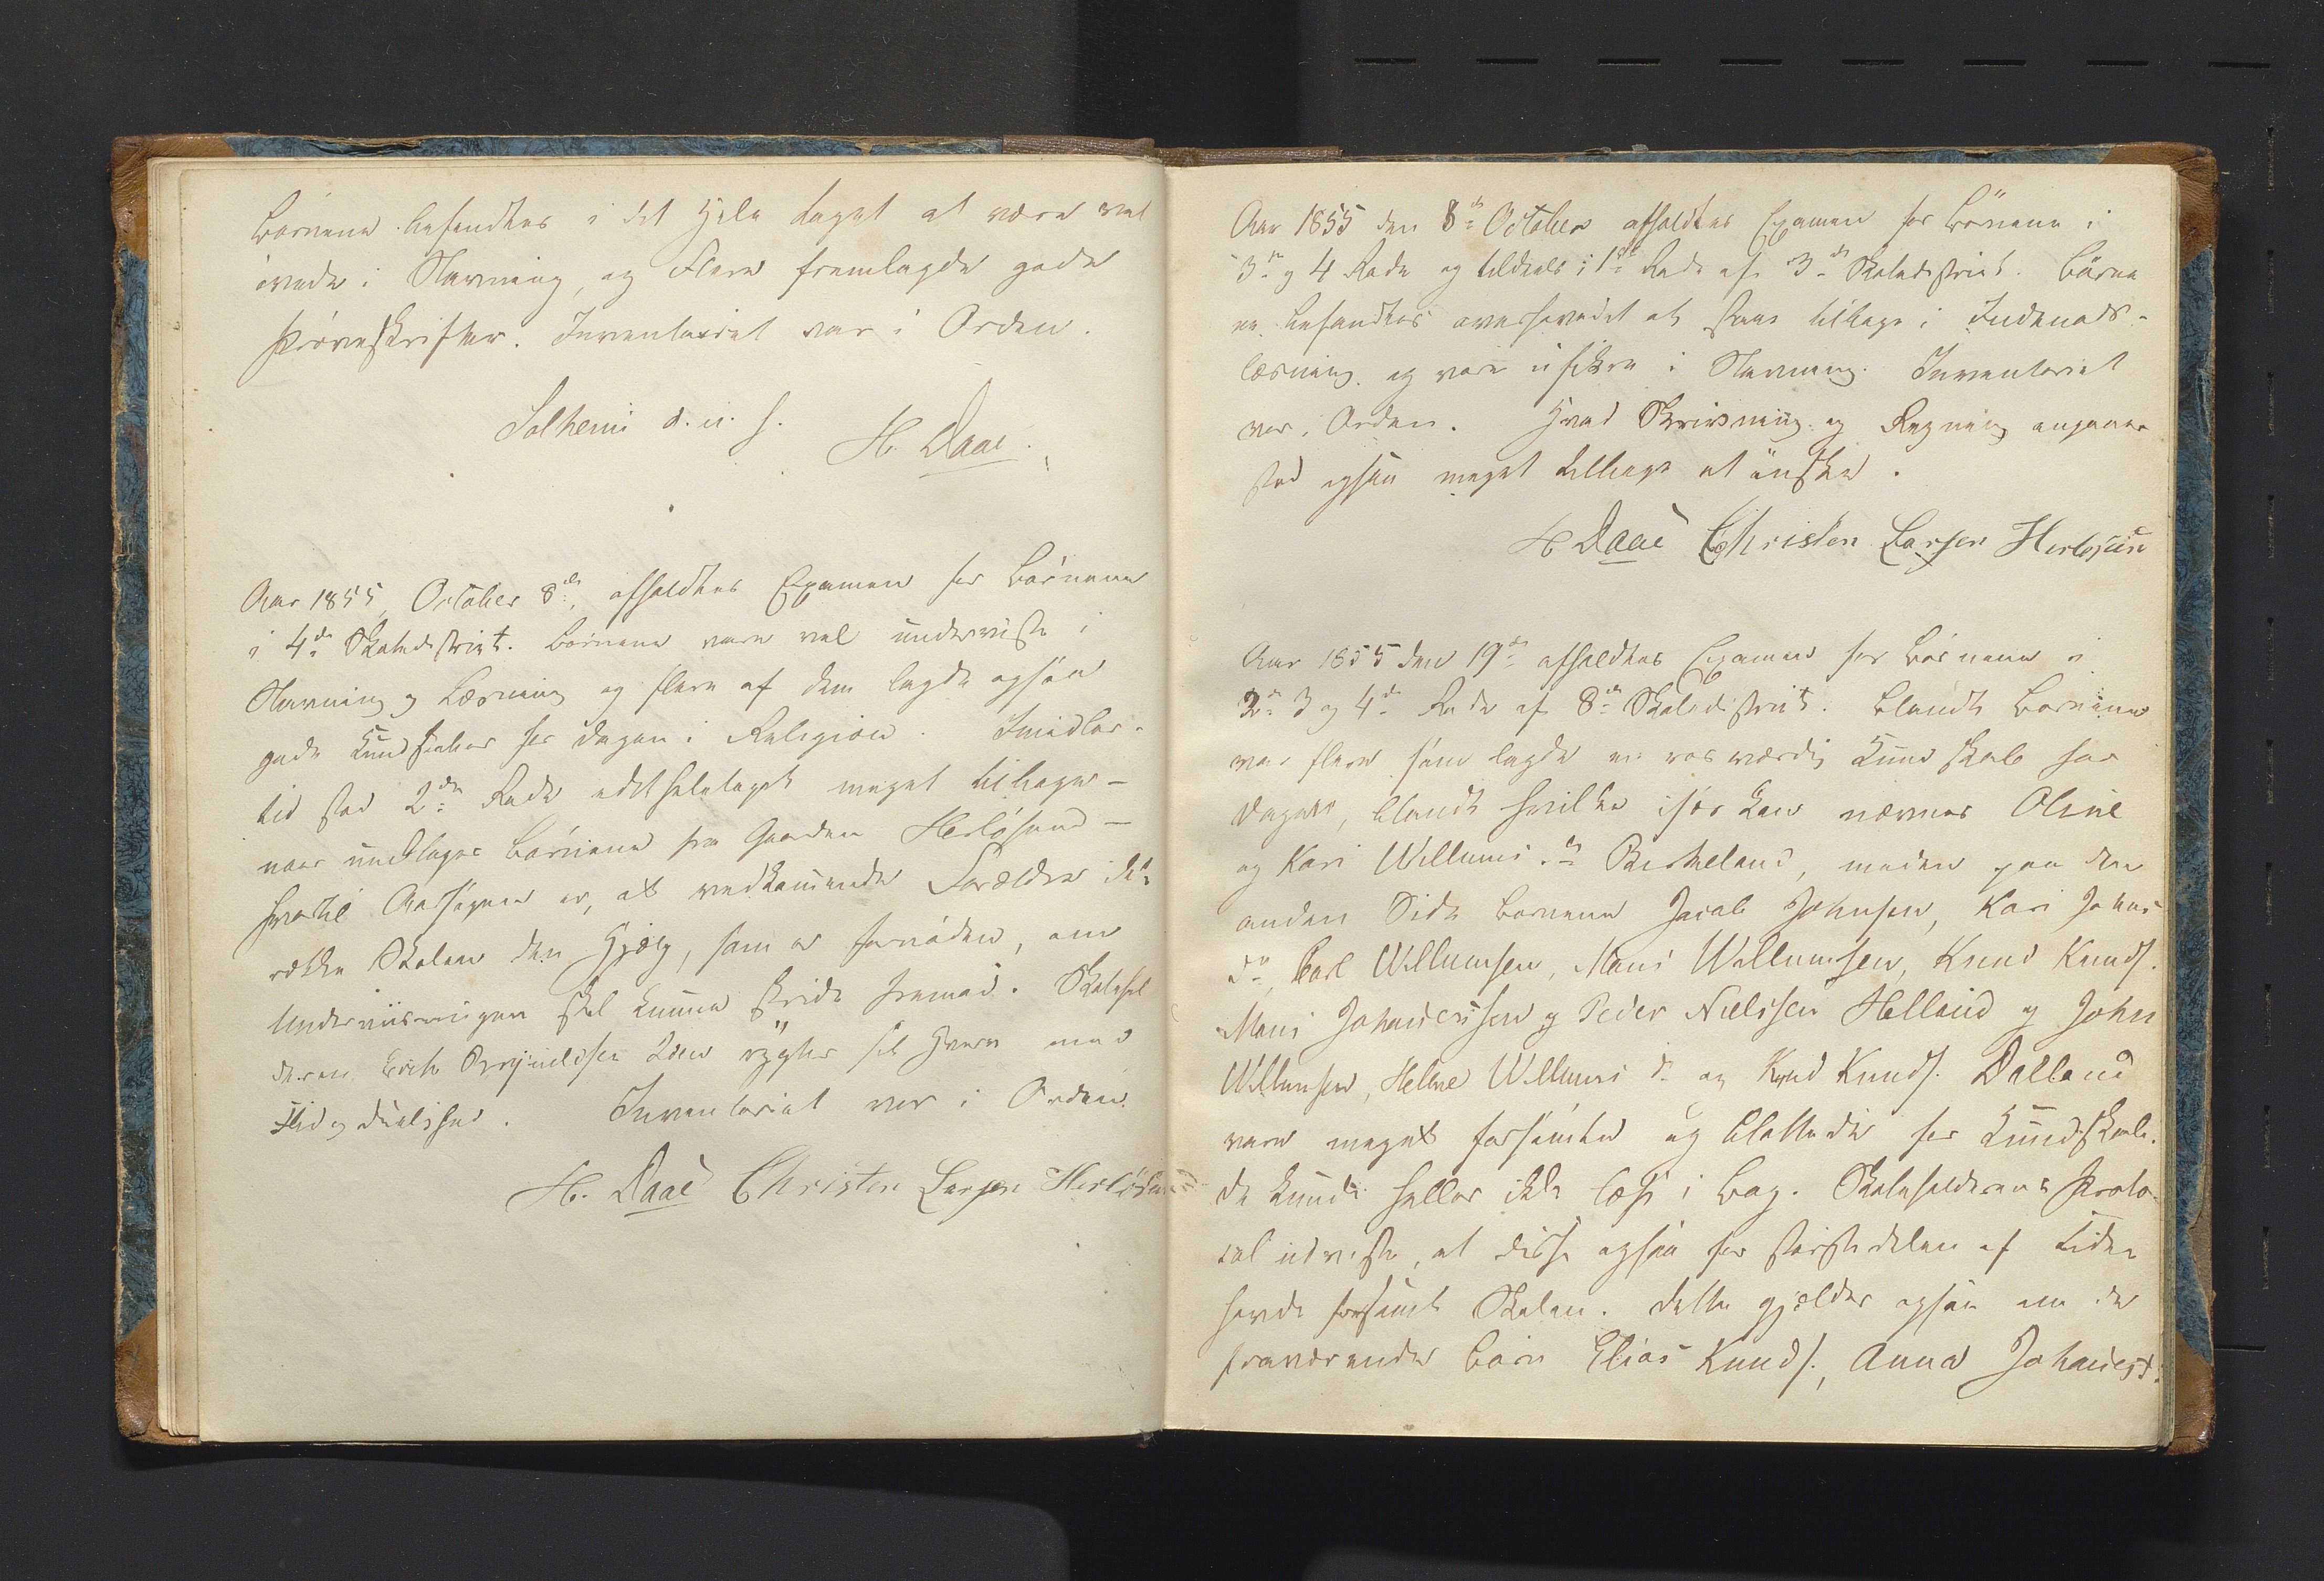 Børnene befandtes i det Hele taget at være vel
øvede i Stavning, og Flere fremlagde gode
Prøveskrifter. Inventariet var i Orden.
Solheim d. u. s.
H. Daae.
Aar 1855, October 8de, afholdtes Examen for Børnene
i 4de Skoledistrict. Børnene vare vel underviste i
Stavning og Læsning og flere af dem lagde ogsaa
gode Kundskaber for Dagen i Religion. Imidler-
tid stod 2den Rode i det hele taget meget tilbage –
naar undtages Børnene fra Gaarden Herløsund –
hvortil Aarsagen er, at vedkommende Forældre ikke
række Skolen den Hjælp, som er fornøden, om
Underviisningen skal kunne skride fremad. Skolehol
deren Erik Brynildsen røgter sit Hverv med
Flid og Duelighed. Inventariet var i Orden.
H. Daae Christen Larsen Herløsund
Aar 1855 den 8de October afholdtes Examen for Børnene i
3die og 4 Rode og tildeels i 1ste Rode af 3die Skoledistrict. Børne
ne befandtes overhovedet at staae tilbage i Indenads-
læsning og vare usikre i Stavning. Inventariet
var i Orden. Hvad Skrivning og Regning angaaer
stod ogsaa meget tilbage at ønske.
H Daae Christen Larsen Herløsun
Aar 1855 den 19de afholdtes Examen for Børnene i
2den 3 og 4de Rode af 8de Skoledistrict. Blandt Børnene
var flere som lagde en rosværdig Kundskab for
Dagen, blandt hvilke især kan nævnes Oline
og Kari Willumsdr Birkeland, medens paa den
anden Side Børnene Jacob Johnsen, Kari Johns
dr, Carl Willumsen, Mons Willumsen, Knud Knuds.
Mons Johannessen og Peder Nielssen Helland og John
Willumsen, Helene Willumsdr og Knud Knuds. Dalland
vare meget forsømte og blottede for Kundskab.
De kunde heller ikke læse i Bog. Skoleholderens Proto-
col udviste, at disse ogsaa for størstedelen af Tiden
havde forsømt Skolen. Dette gjælder ogsaa om de
fraværende Børn Elias Knuds., Anna Johannesd.